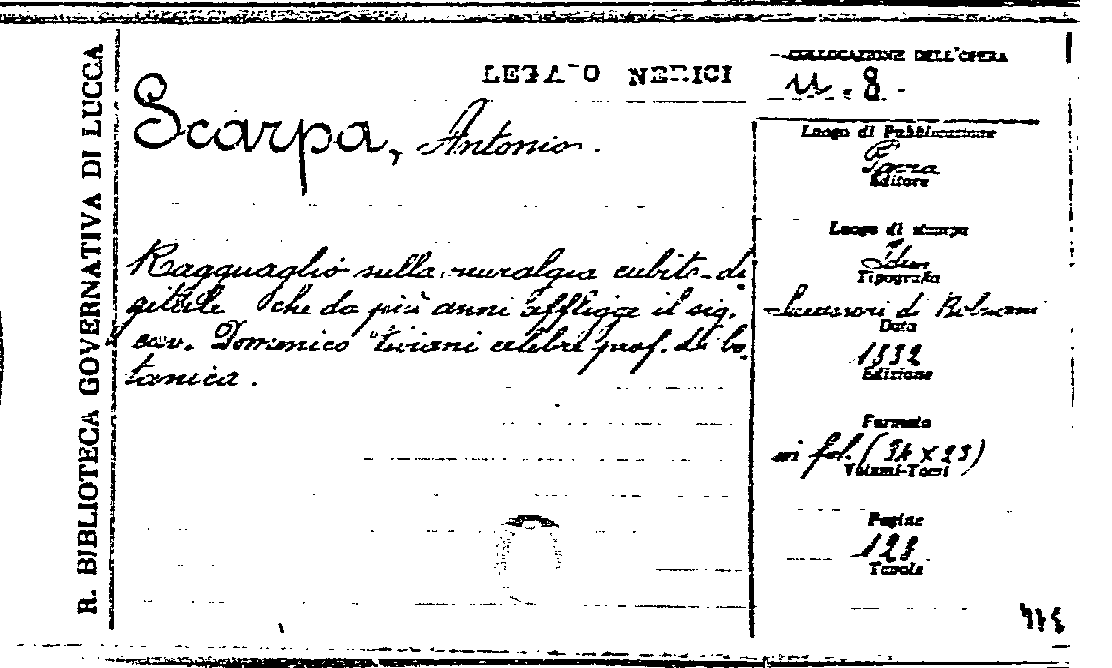 R. BIBLIOTECA GOVERNATIVA DI LUCCA
LEGATO NERICI
Scarpa, Antonio.
Ragguaglio sulla nevralgia cubito-di
gitale che da più anni affligge il sig.
cav. Domenico Viviani celebre prof. di bo
tanica.
COLLOCAZIONE DELL'OPERA
u. 8.
Luogo di Pubblicazione
Editore
Luogo di stampa
Idem
Tipografia
Successori di Bolzani
Data
1832
Edizione
Formato
in fol. (34 x 23)
Volumi-Tomi
Pagine
128
Tavole